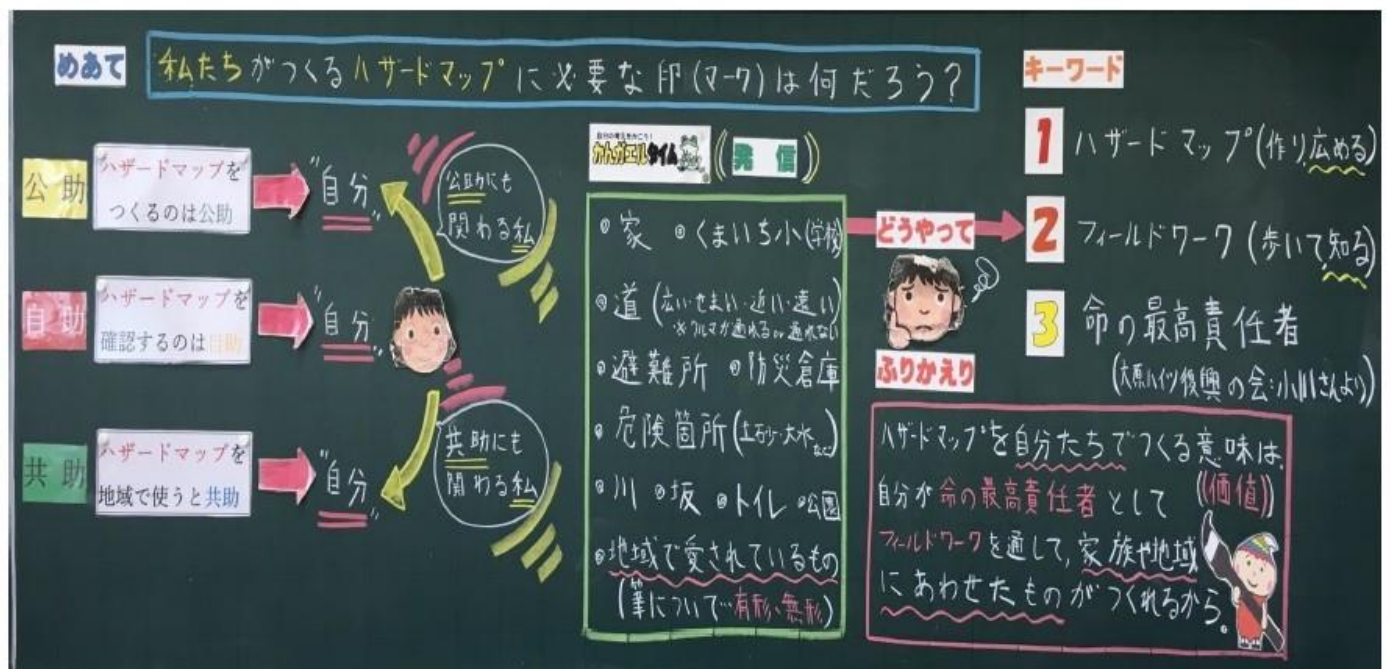 めあて
私たちがつくるハザードマップに必要な印(マーク)は何だろう?
公助
ハザードマップを
つくるのは公助
"自分"
公助にも
関わる私
自助
ハザードマップを
確認するのは自助
"自分"
共助
ハザードマップを
地域で使うと共助
"自分"
共助にも
関わる私
かんガエルタイム
発信
家 くまいち小(学校)
道(広い・せまい・近い・遠い)
※クルマが通れるor通れない
避難所 防災倉庫
危険箇所(土砂・大水など)
川 坂 トイレ 公園
地域で愛されているもの
(筆について…有形、無形)
どうやって
キーワード
1 ハザードマップ(作り広める)
2 フィールドワーク(歩いて知る)
3 命の最高責任者
(大原ハイツ復興の会:小川さんより)
ふりかえり
ハザードマップを自分たちでつくる意味は、
(価値)
自分が命の最高責任者として
フィールドワークを通して、家族や地域
にあわせたものがつくれるから。